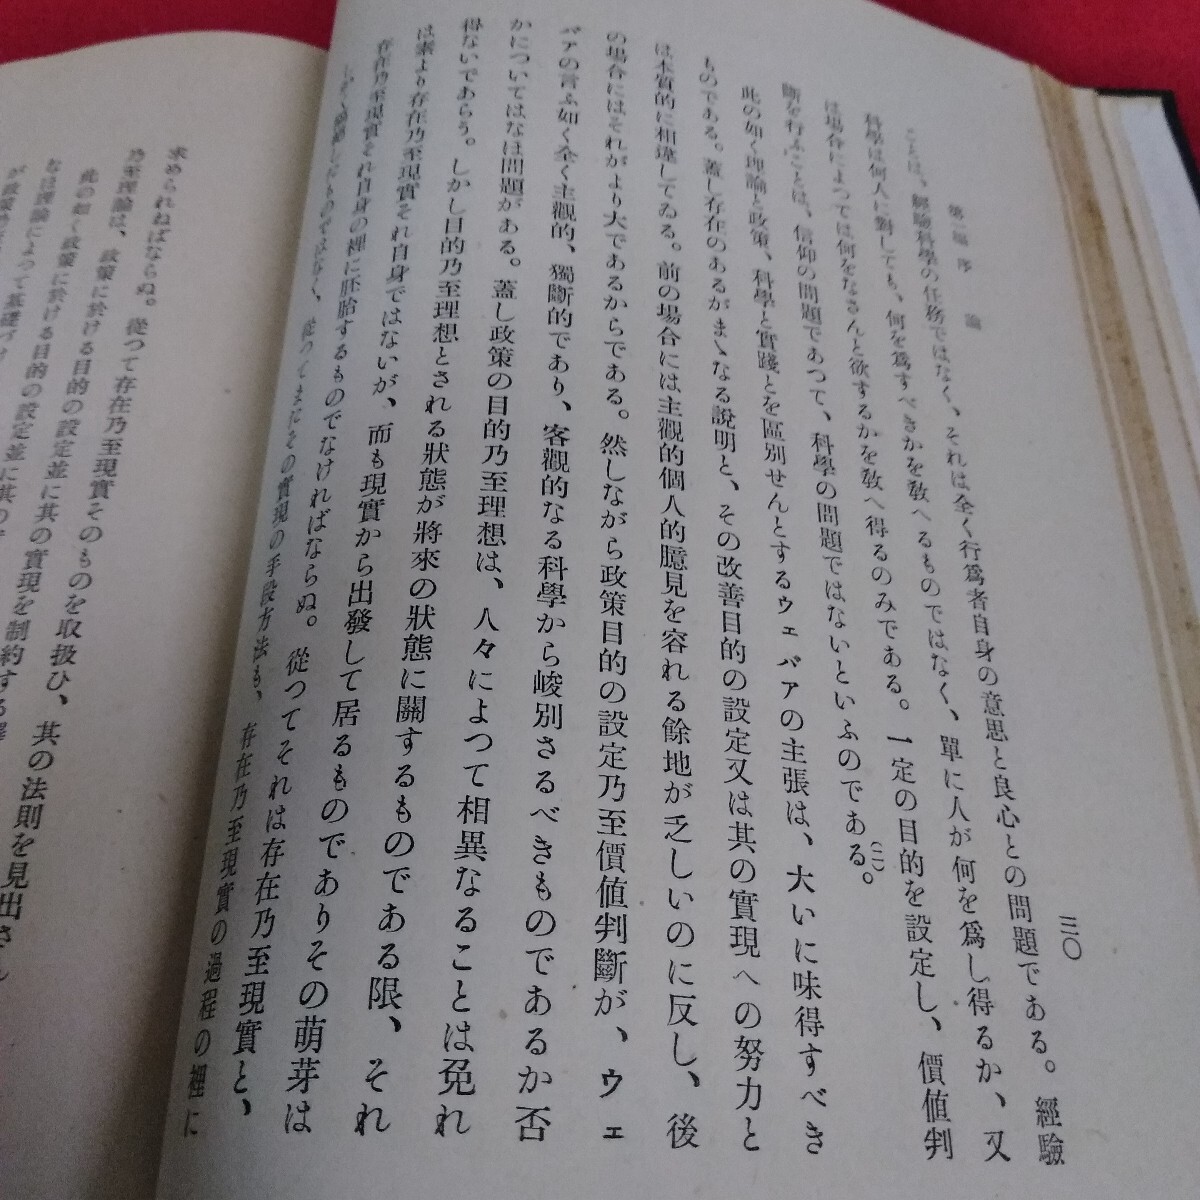 第一編 序論
三〇
ことは、經驗科學の任務ではなく、それは全く行爲者自身の意思と良心との問題である。經驗
科學は何人に對しても、何を爲すべきかを敎へるものではなく、單に人が何を爲し得るか、又
は場合によつては何をなさんと欲するかを敎へ得るのみである。一定の目的を設定し、價値判
斷を行ふことは、信仰の問題であつて、科學の問題ではないといふのである(二)。
此の如く理論と政策、科學と實踐とを區別せんとするウェバアの主張は、大いに味得すべき
ものである。蓋し存在のあるがまゝなる説明と、その改善目的の設定又は其の實現への努力と
は本質的に相違してゐる。前の場合には主觀的個人的臆見を容れる餘地が乏しいのに反し、後
の場合にはそれがより大であるからである。然しながら政策目的の設定乃至價値判斷が、ウェ
バアの言ふ如く全く主觀的、獨斷的であり、客觀的なる科學から峻別さるべきものであるか否
かについてはなほ問題がある。蓋し政策の目的乃至理想は、人々によつて相異なることは免れ
得ないであらう。しかし目的乃至理想とされる狀態が將來の狀態に關するものである限、それ
は素より存在乃至現實それ自身ではないが、而も現實から出發して居るものでありその萌芽は
存在乃至現實それ自身の裡に胚胎するものでなければならぬ。從つてそれは存在乃至現實と、
したものではなく、從つてまたその實現の手段方法も、存在乃至現實の過程の裡に
求められねばならぬ。從つて存在乃至現實そのものを取扱ひ、其の法則を見出さん
乃至理論は、政策に於ける目的の設定並に其の實現を制約する
此の如く政策に於ける目的の設定並に其の
なほ理論によつて基礎づけ
が政策